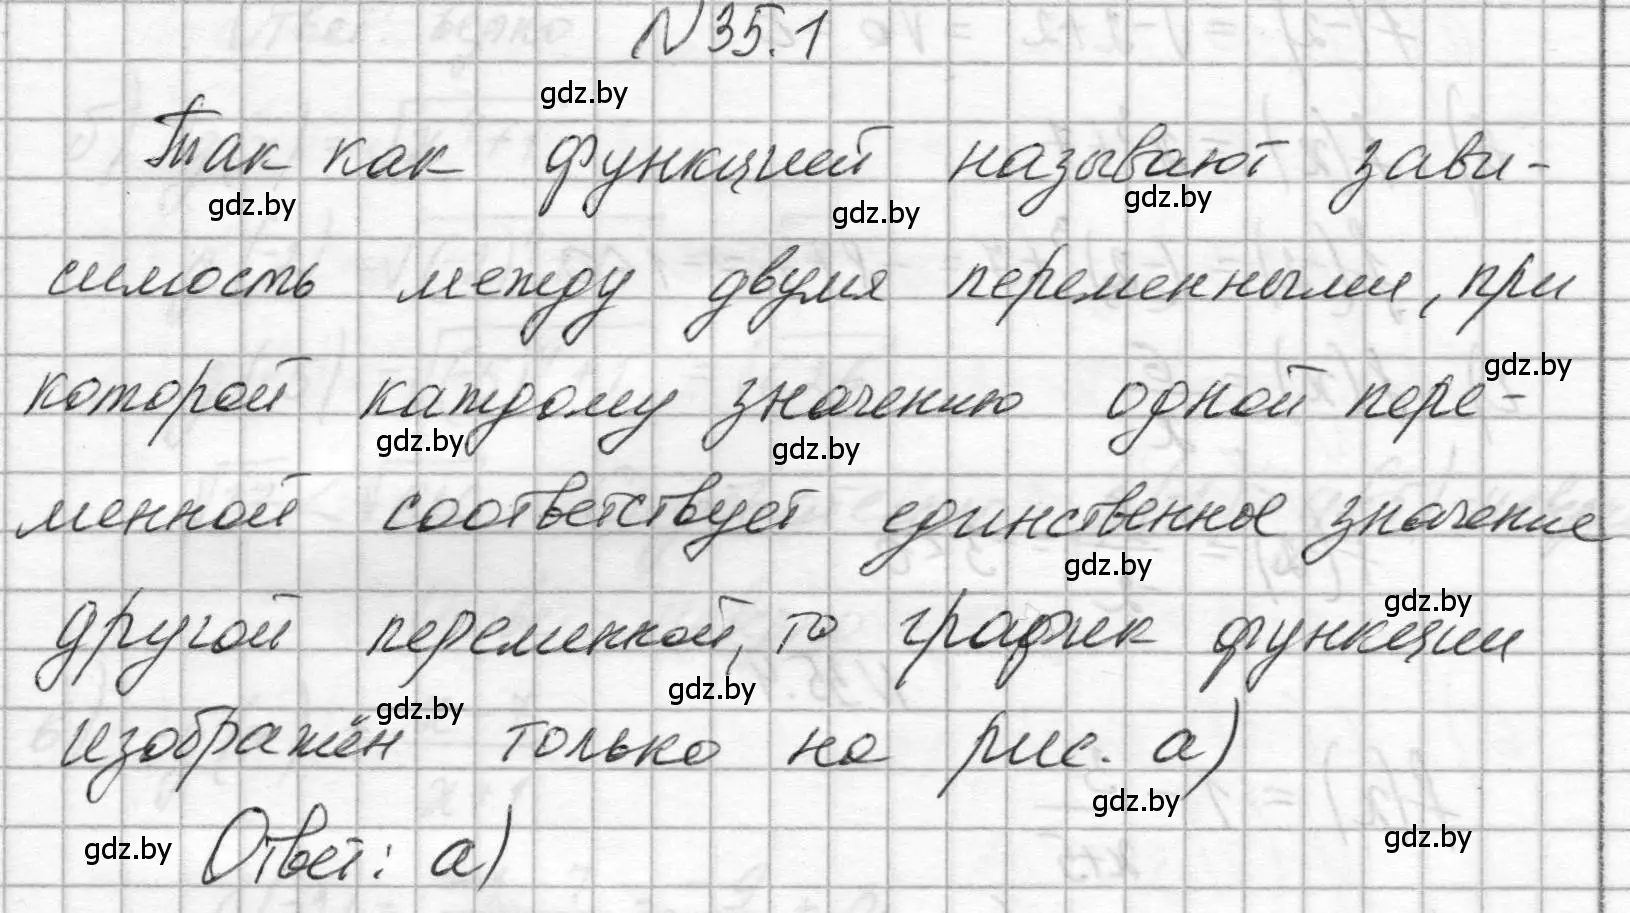 N 35.1
gdz.by
Так как функцией называют зави-
gdz.by gdz.by gdz.by
симость между двумя переменными, при
gdz.by
которой каждому значению одной пере-
gdz.by gdz.by
менной соответствует единственное значение
gdz.by
gdz.by
другой переменной, то график функции
gdz.by gdz.by
изображён только на рис. а)
gdz.by
gdz.by Ответ: а) gdz.by